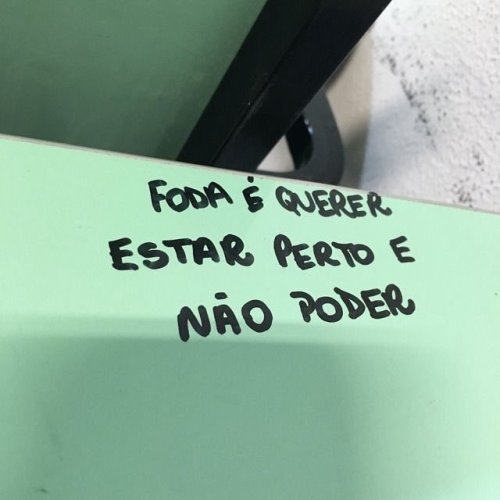 FODA É QUERER
ESTAR PERTO E
NÃO PODER